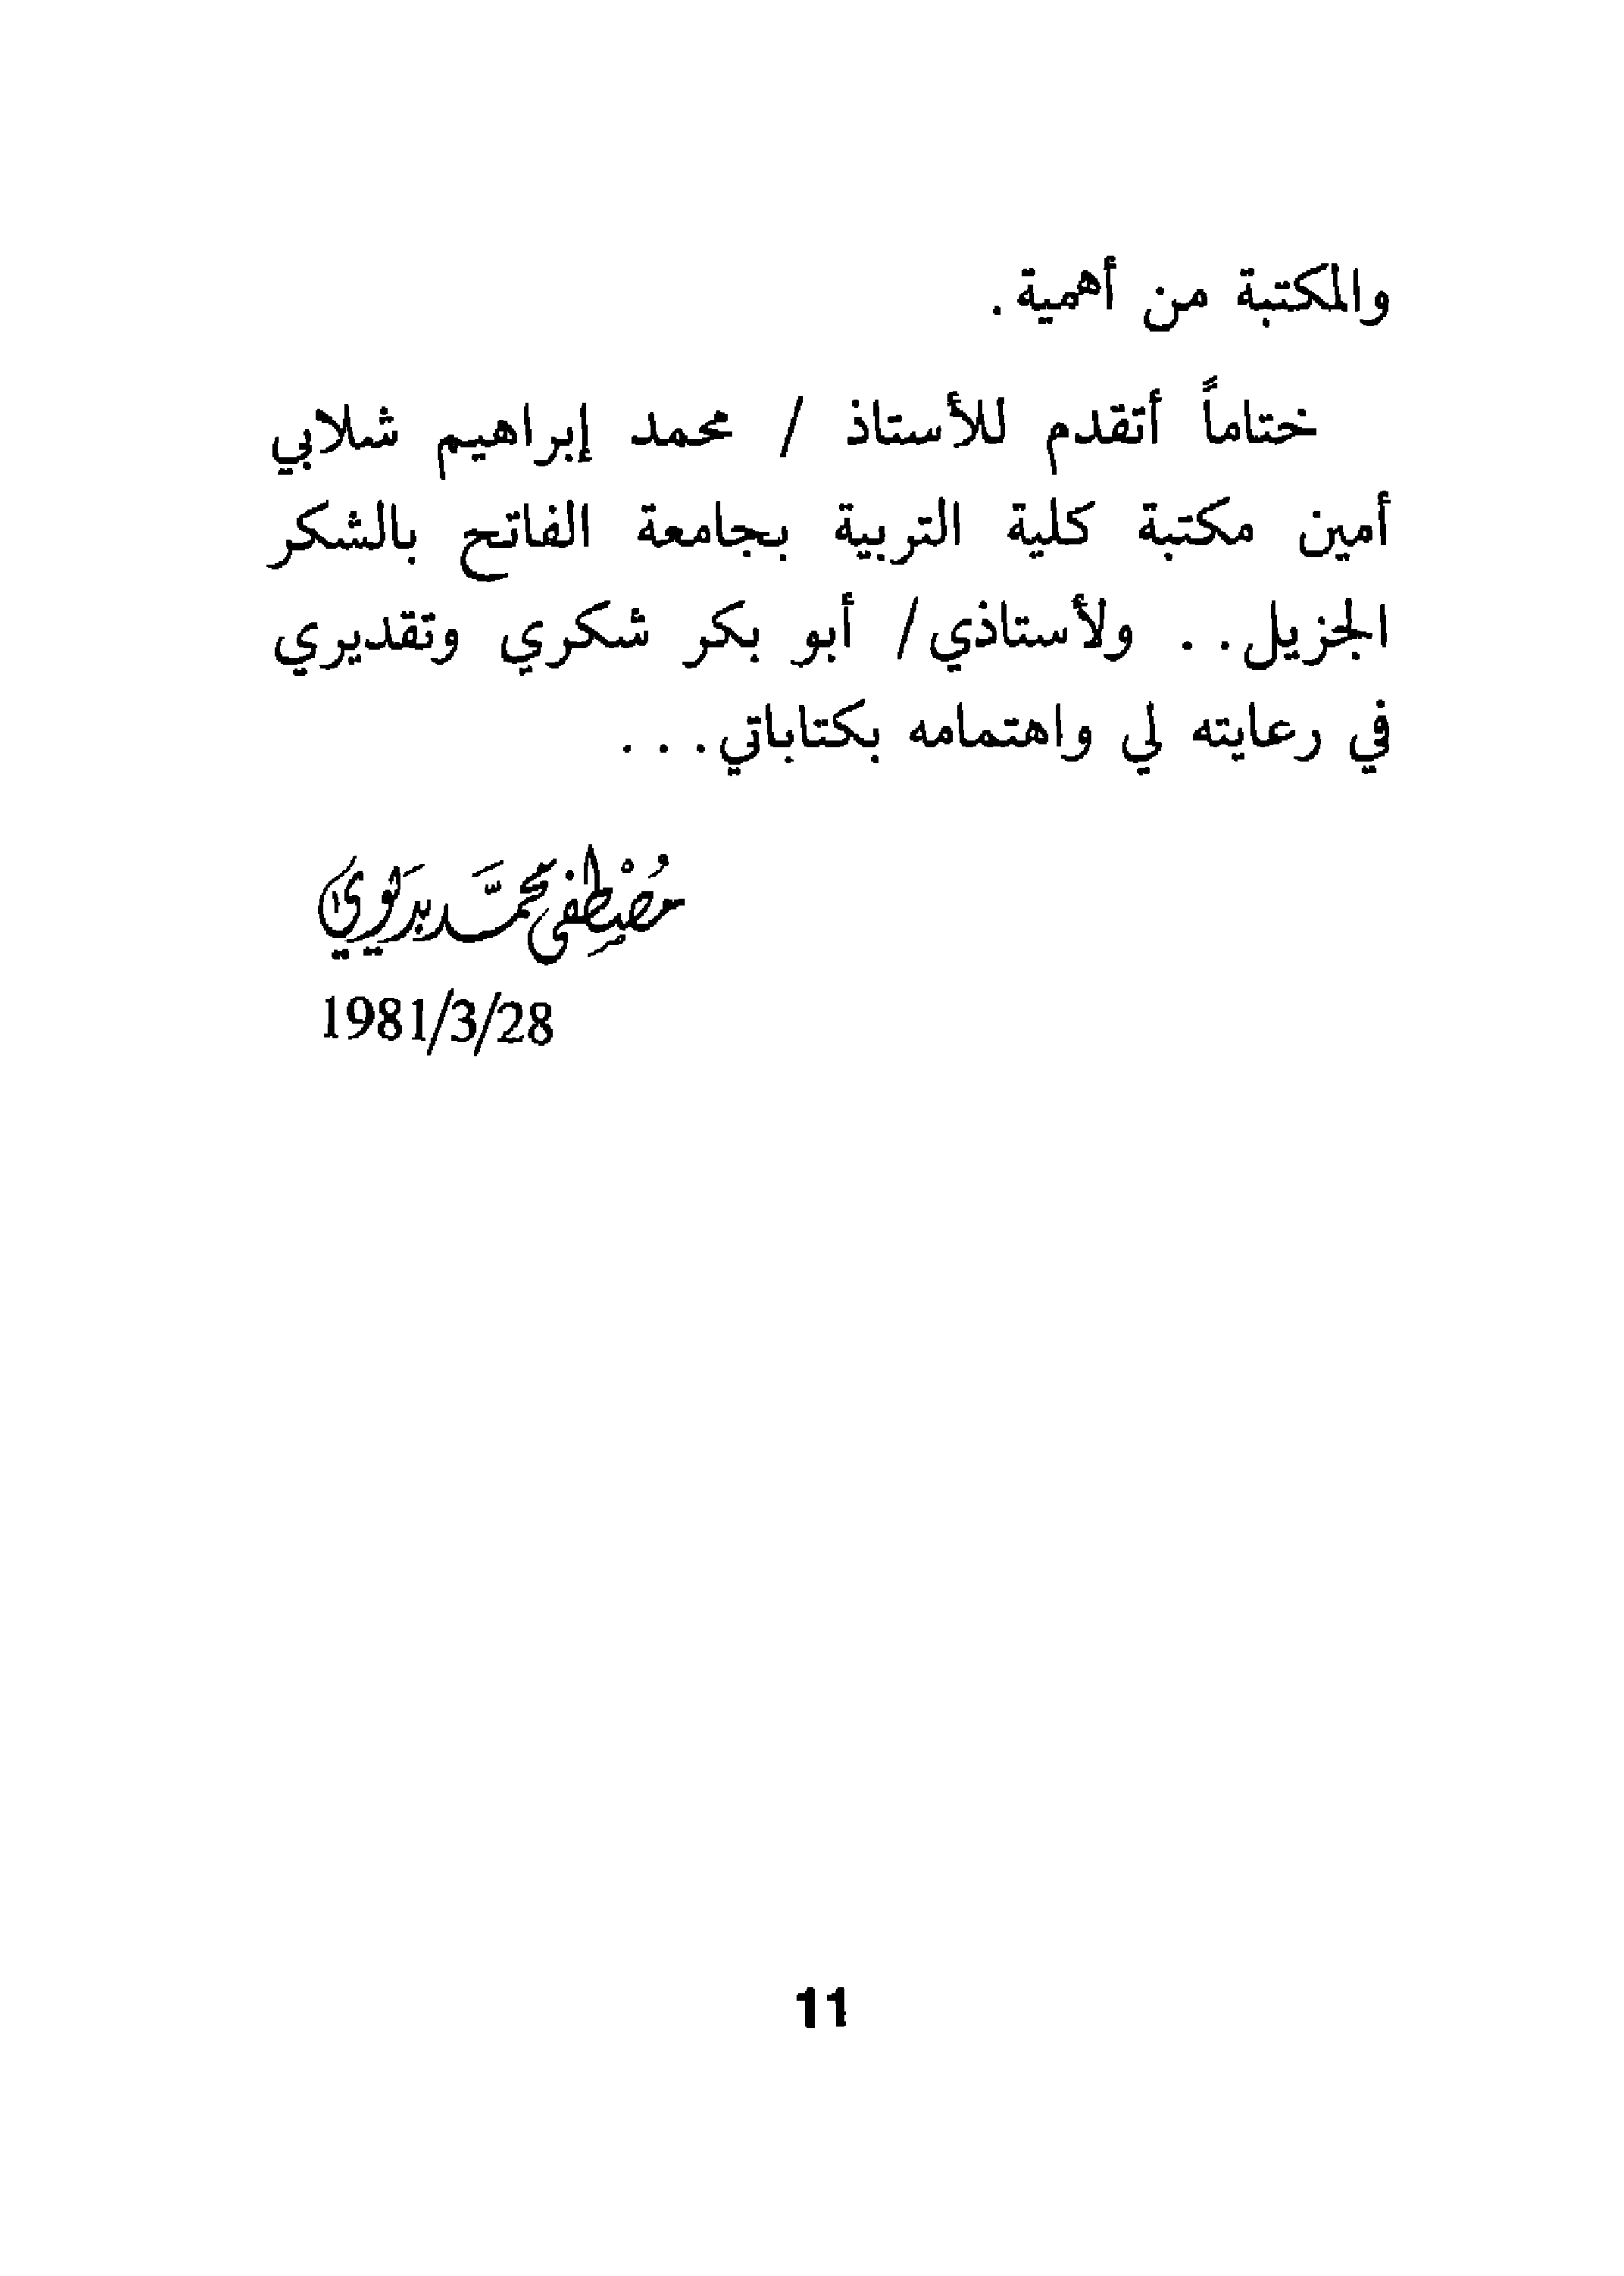 والمكتبة من أهمية .
ختاماً أتقدم للأستاذ / محمد إبراهيم شلابي
أمين مكتبة كلية التربية بجامعة الفاتح بالشكر
الجزيل . . ولأستاذي/ أبو بكر شكري وتقديري
في رعايته لي واهتمامه بكتاباتي . . .
مُصْطِفى محمَّد بديوي
1981/3/28
11